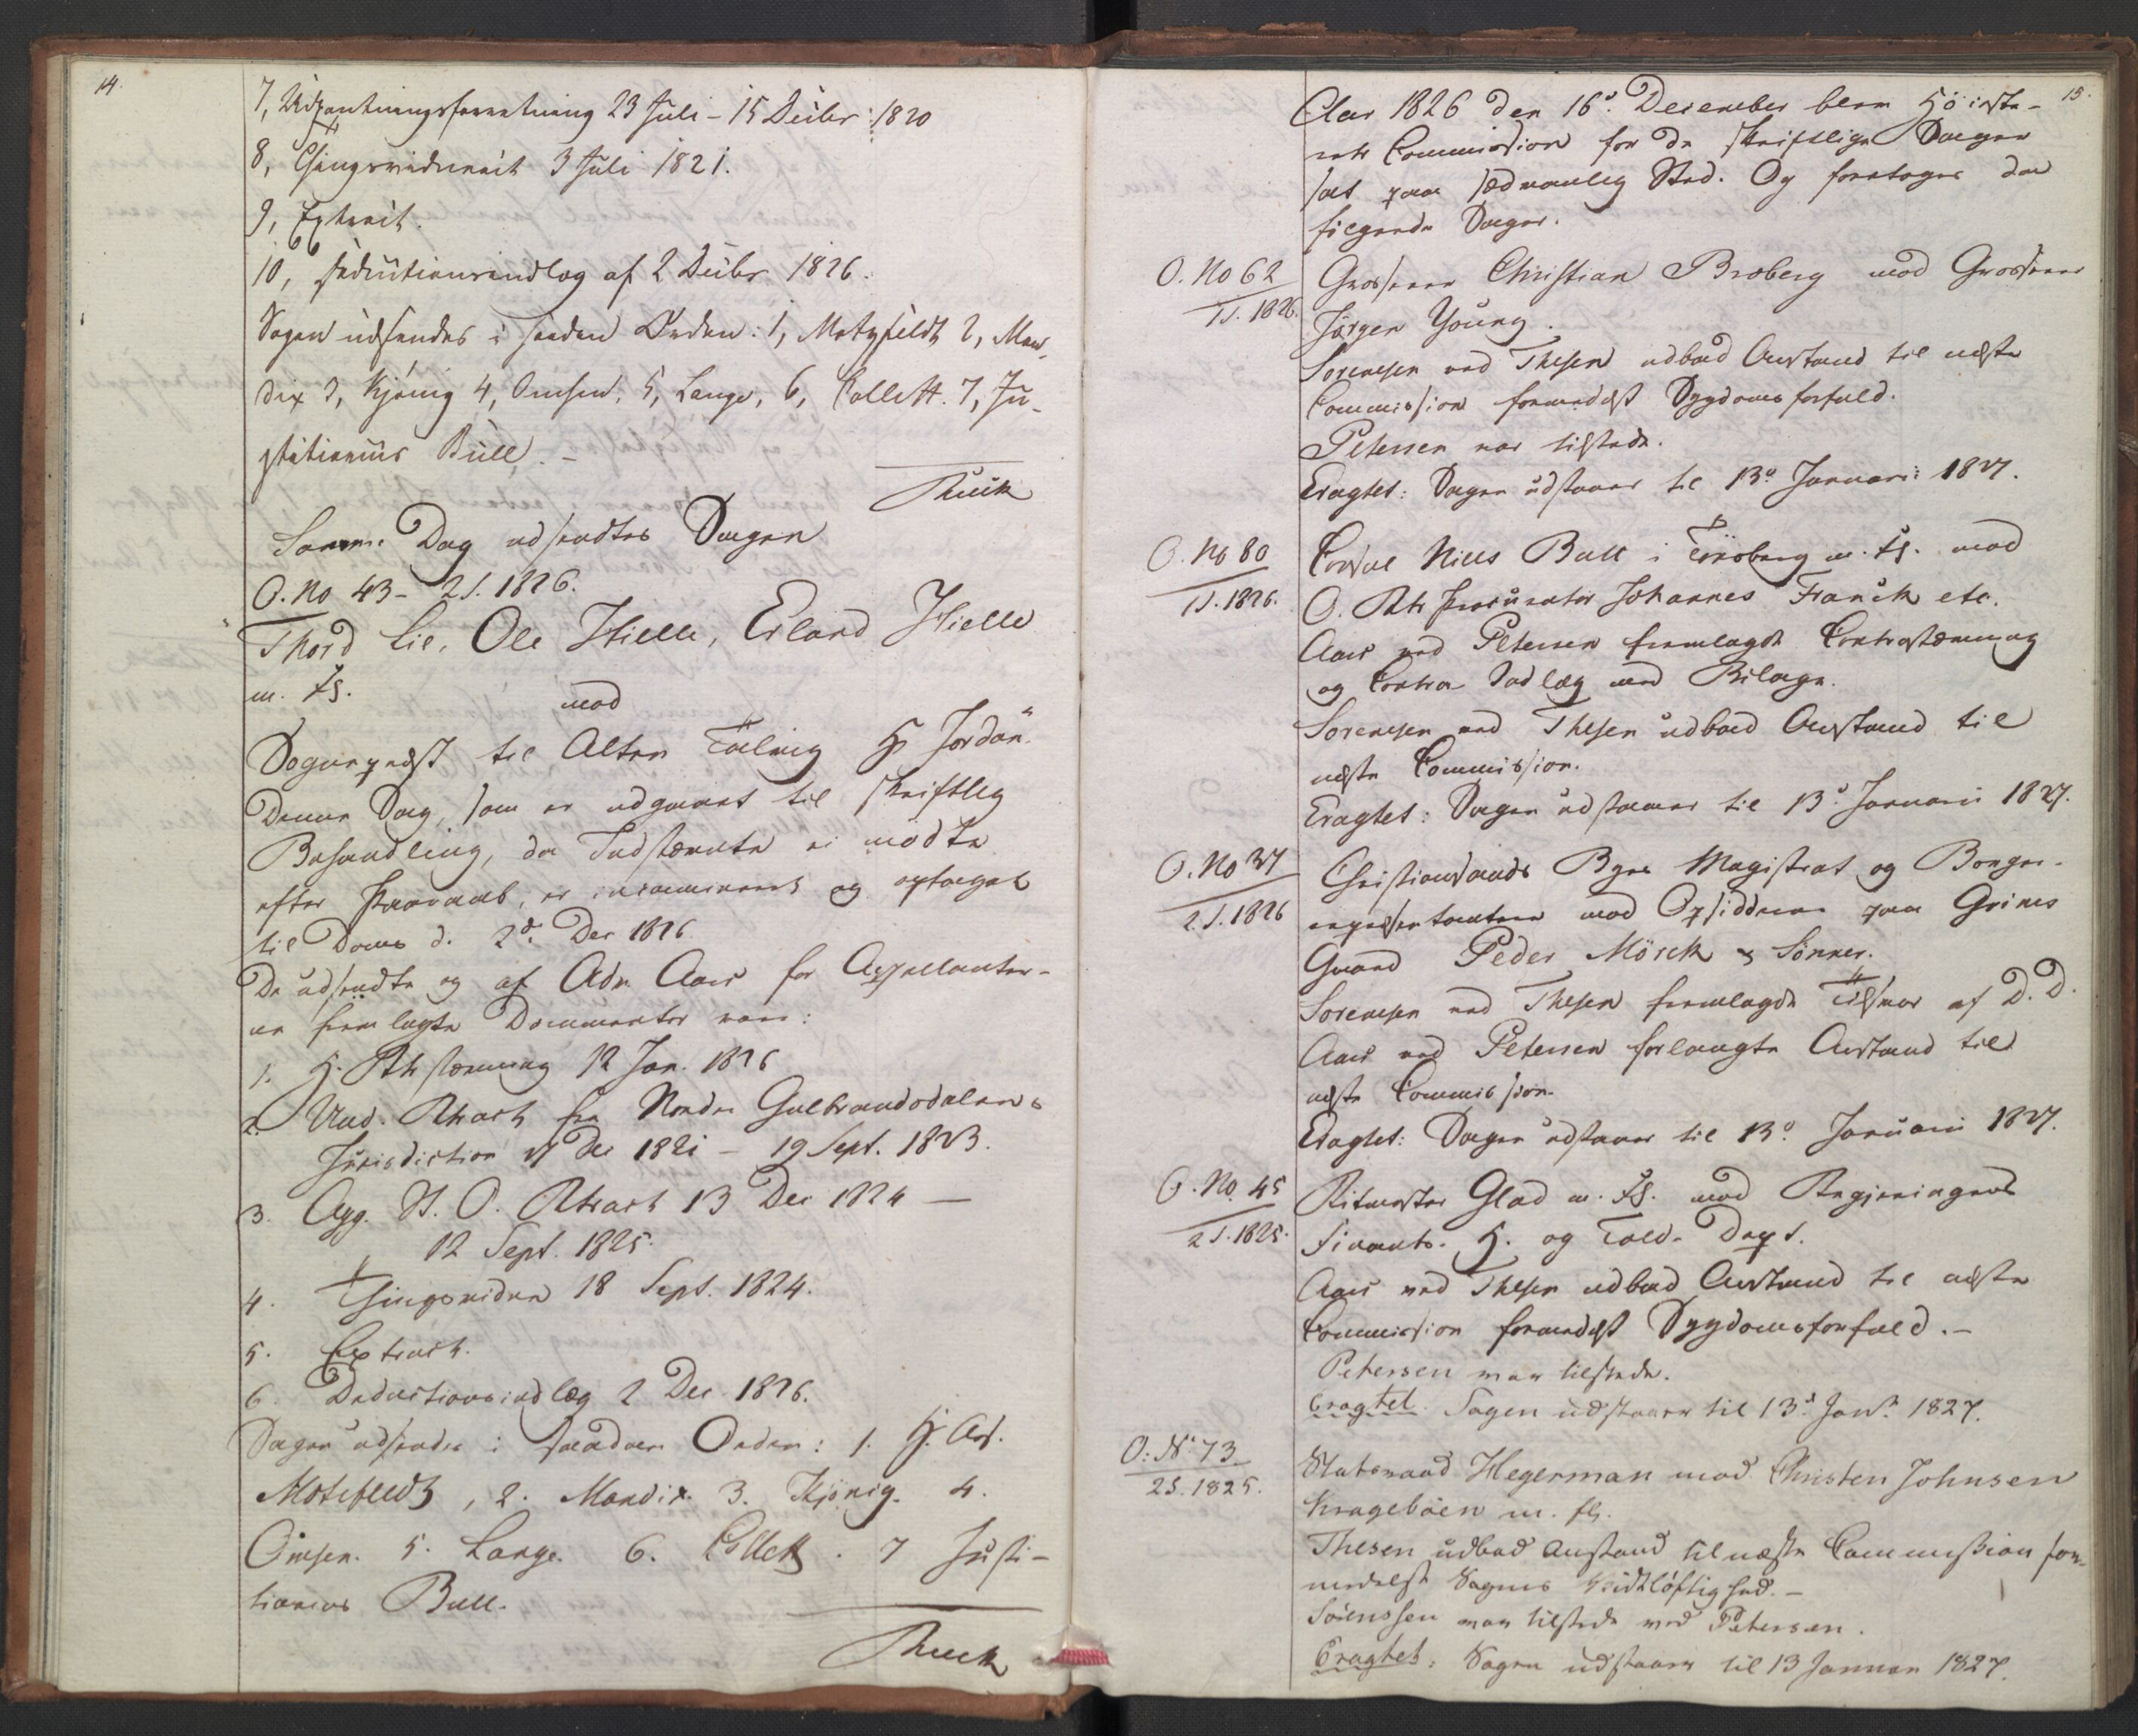 14.
7, Udpantningsforretning 23 Juli - 15 Decbr: 1820
8, Thingsvidnerit 3 Juli 1821.
9, Extract.
10, Deductionsindlæg af 2 Decbr 1826.
Sagen udsendes i saadan Orden: 1, Motzfeldt, 2, Man-
dix 3, Kjönig 4, Omsen, 5, Lange, 6, Collett. 7, Ju-
stitiarius Bull. -
Samme Dag udsendtes Sagen
O. No 43 - 2 S. 1826.
Thord Lie, Ole Hielle, Erland Hielle
m. fl. mod
Sognepræst til Alten Tallvig Hr Jordan.
Denne Sag, som er udgaaet til skriftlig
Behandling, da Indstævnte ei mödte
efter Paaraab, er incamineret og optaget
til Doms d. 2d. Dec 1826
De udsendte og af Adv. Aars for Appellanter-
ne fremlagte Documenter vare:
1. H. Rts stævning 12 Jan. 1826
2. Und. Rtsact fra Nordre Gulbrandsdalens
Jurisdiction 17 Dec 1821 - 19 Sept. 1823.
3. Agg. St. O. Rtsact 13 Dec 1824 -
12 Sept. 1825.
4. Thingsvidne 18 Sept. 1824.
5. Extract.
6. Deductionsindlæg 2 Dec 1826.
Sagen udsendes i saadan Orden: 1. H. Ass.
Motzfeldt, 2. Mandix. 3. Kjönig. 4.
Omsen. 5. Lange. 6. Collett. 7 Justi-
tiarius Bull.
15.
Aar 1826 den 16d. December blev Höieste-
rets Commission for de skriftlige Sager
sat paa sædvanlig Sted. Og foretoges da
fölgende Sager.
O. No 62
1 S. 1826.
Grosserer Christian Broberg mod Grosserer
Jörgen Young.
Sörensen ved Thesen udbad Anstand til næste
Commission formedelst Sygdomsforfald.
Petersen var tilstede.
Eragtet: Sagen udstaaer til 13d Januari 1827.
O. No 80
1 S. 1826.
Consul Niels Bull i Tönsberg m. fl. mod
O. Rts Procurator Johannes Franck etc.
Aars ved Petersen fremlagde Contrastævning
og Contra-Indlæg med Bilage.
Sorensen ved Thesen udbad Anstand til
næste Commission.
Eragtet: Sagen udstaaer til 13d. Januarii 1827.
O. No 37
2 S. 1826
Christiansands Byes Magistrat og Borger-
repræsentantere mod Opsidderne paa Grims
Gaard Peder Mörck & Sönner.
Sorensen ved Thesen fremlagde Tilsvar af D.D.
Aars ved Petersen forlangte Anstand til
næste Commission.
Eragtet: Sagen udstaaer til 13d. Januarii 1827.
O. No. 45
2 S. 1825.
Ritmester Glad m. fl. mod Regjeringens
Finants. H. og Told. Dept.
Aars ved Thesen udbad Anstand til næste
Commission formedelst Sygdomsforfald. -
Petersen var tilstede.
Eragtet. Sagen udstaaer til 13d Janr. 1827.
O: No 73
2 S. 1825.
Statsraad Hegerman mod Christen Johnsen
Krageböen m. fl.
Thesen udbad Anstand til næste Commission for-
medelst Sagens Vidtlöftighed. -
Sörenssen var tilstede med Petersen.
Eragtet: Sagen udstaaer til 13 Januar 1827.